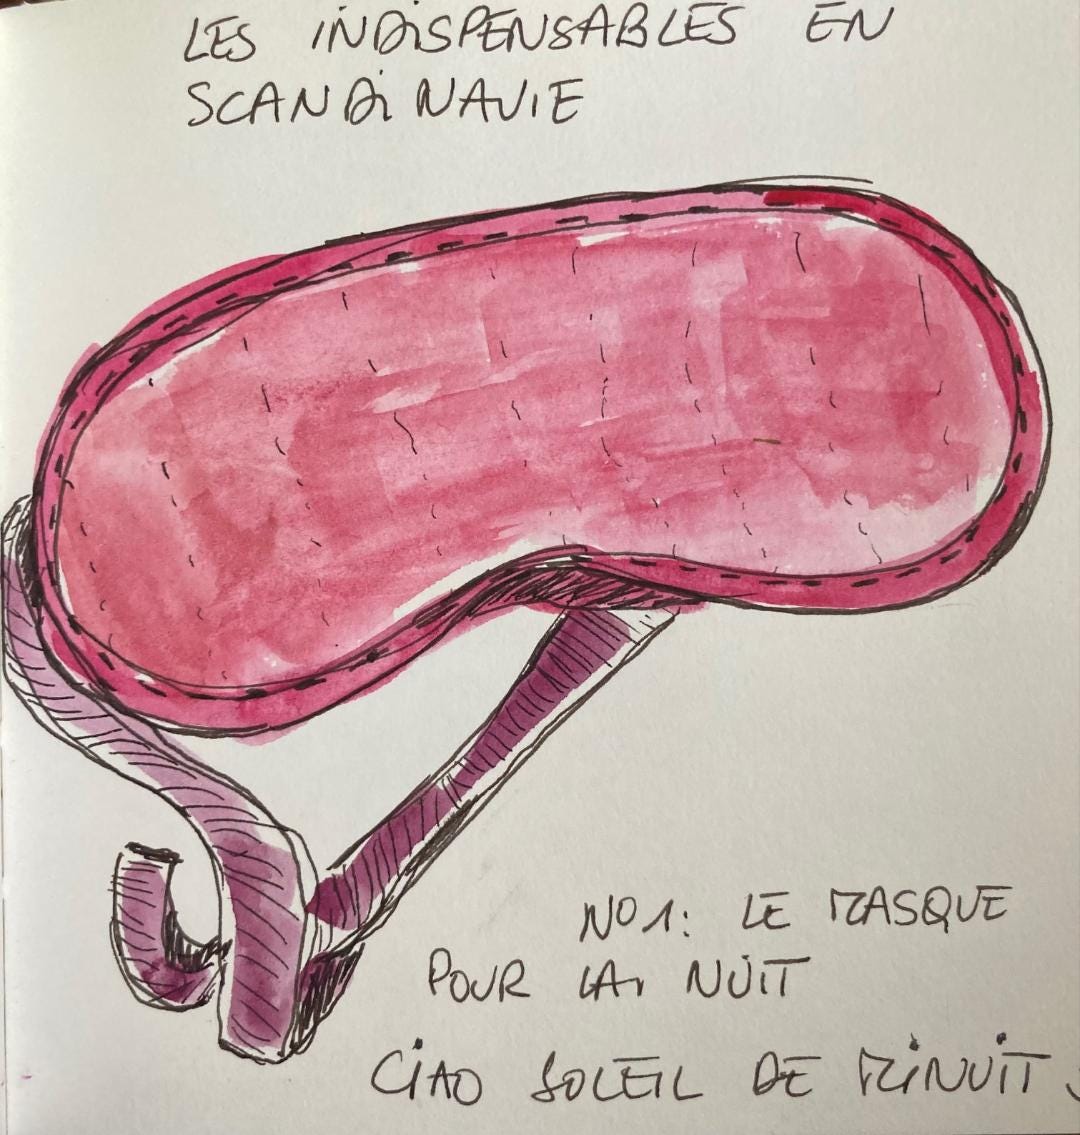 LES INDISPENSABLES EN
SCANDINAVIE
NO1: LE MASQUE
POUR LA NUIT
CIAO SOLEIL DE MINUIT